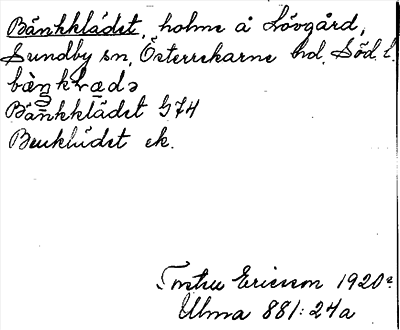 Bänkklädet, holme å Lövgård,
Sundby sn, Österrekarne hd, Söd. l.
bäŋkkɭædə
Bänkklädet G74
Benklädet ek.
Torsten Ericsson 1920
Ulma 881:24a